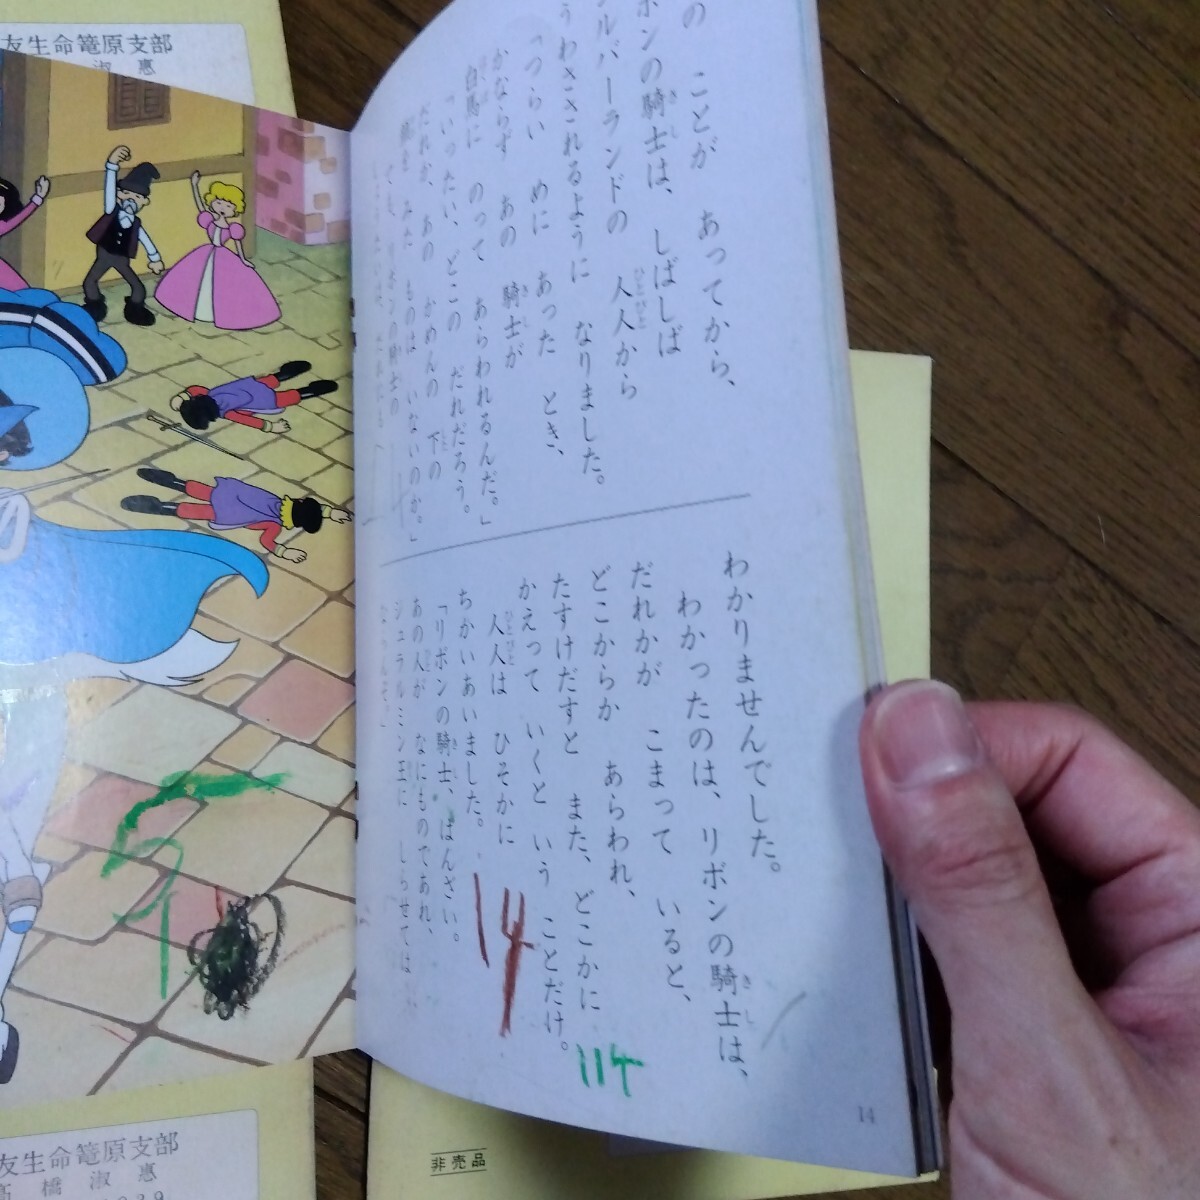 友生命篭原支部
淑 惠
の ことが あってから、
ボンの騎士は、しばしば
ルバーランドの 人人から
うわさされるように なりました。
「つらい めに あった とき、
かならず あの 騎士が
白馬に のって あらわれるんだ。」
「いったい、どこの だれだろう。
だれか、あの かめんの 下の
顔を みた ものは いないのか。」
でも、リボンの騎士の
わかりませんでした。
わかったのは、リボンの騎士は、
だれかが こまって いると、
どこからか あらわれ、
たすけだすと また、どこかに
かえって いくと いう ことだけ。
人人は ひそかに
ちかいあいました。
「リボンの騎士、ばんざい。
あの人が なにものであれ、
ジュラルミン王に しらせては
ならんぞ。」
14
114
14
友生命篭原支部
髙橋淑惠
非売品